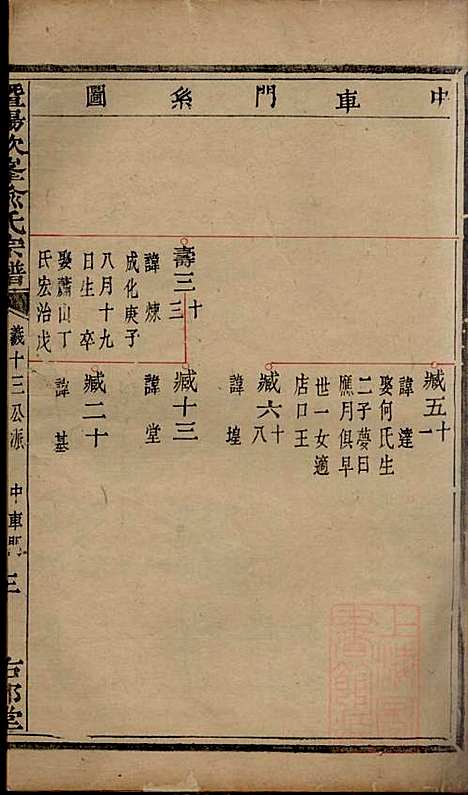 中車門系圖
壽三十三
諱煉
成化庚子
八月十九
日生卒
娶蕭山丁
氏宏治戊
臧五十一
諱達
娶何氏生
二子夢日
應月俱早
世一女適
店口王
臧六十八
諱堭
臧十三
諱堂
臧二十
諱基
暨陽次峯俞氏宗譜
義十三公派
中車門
三
上海圖書館藏